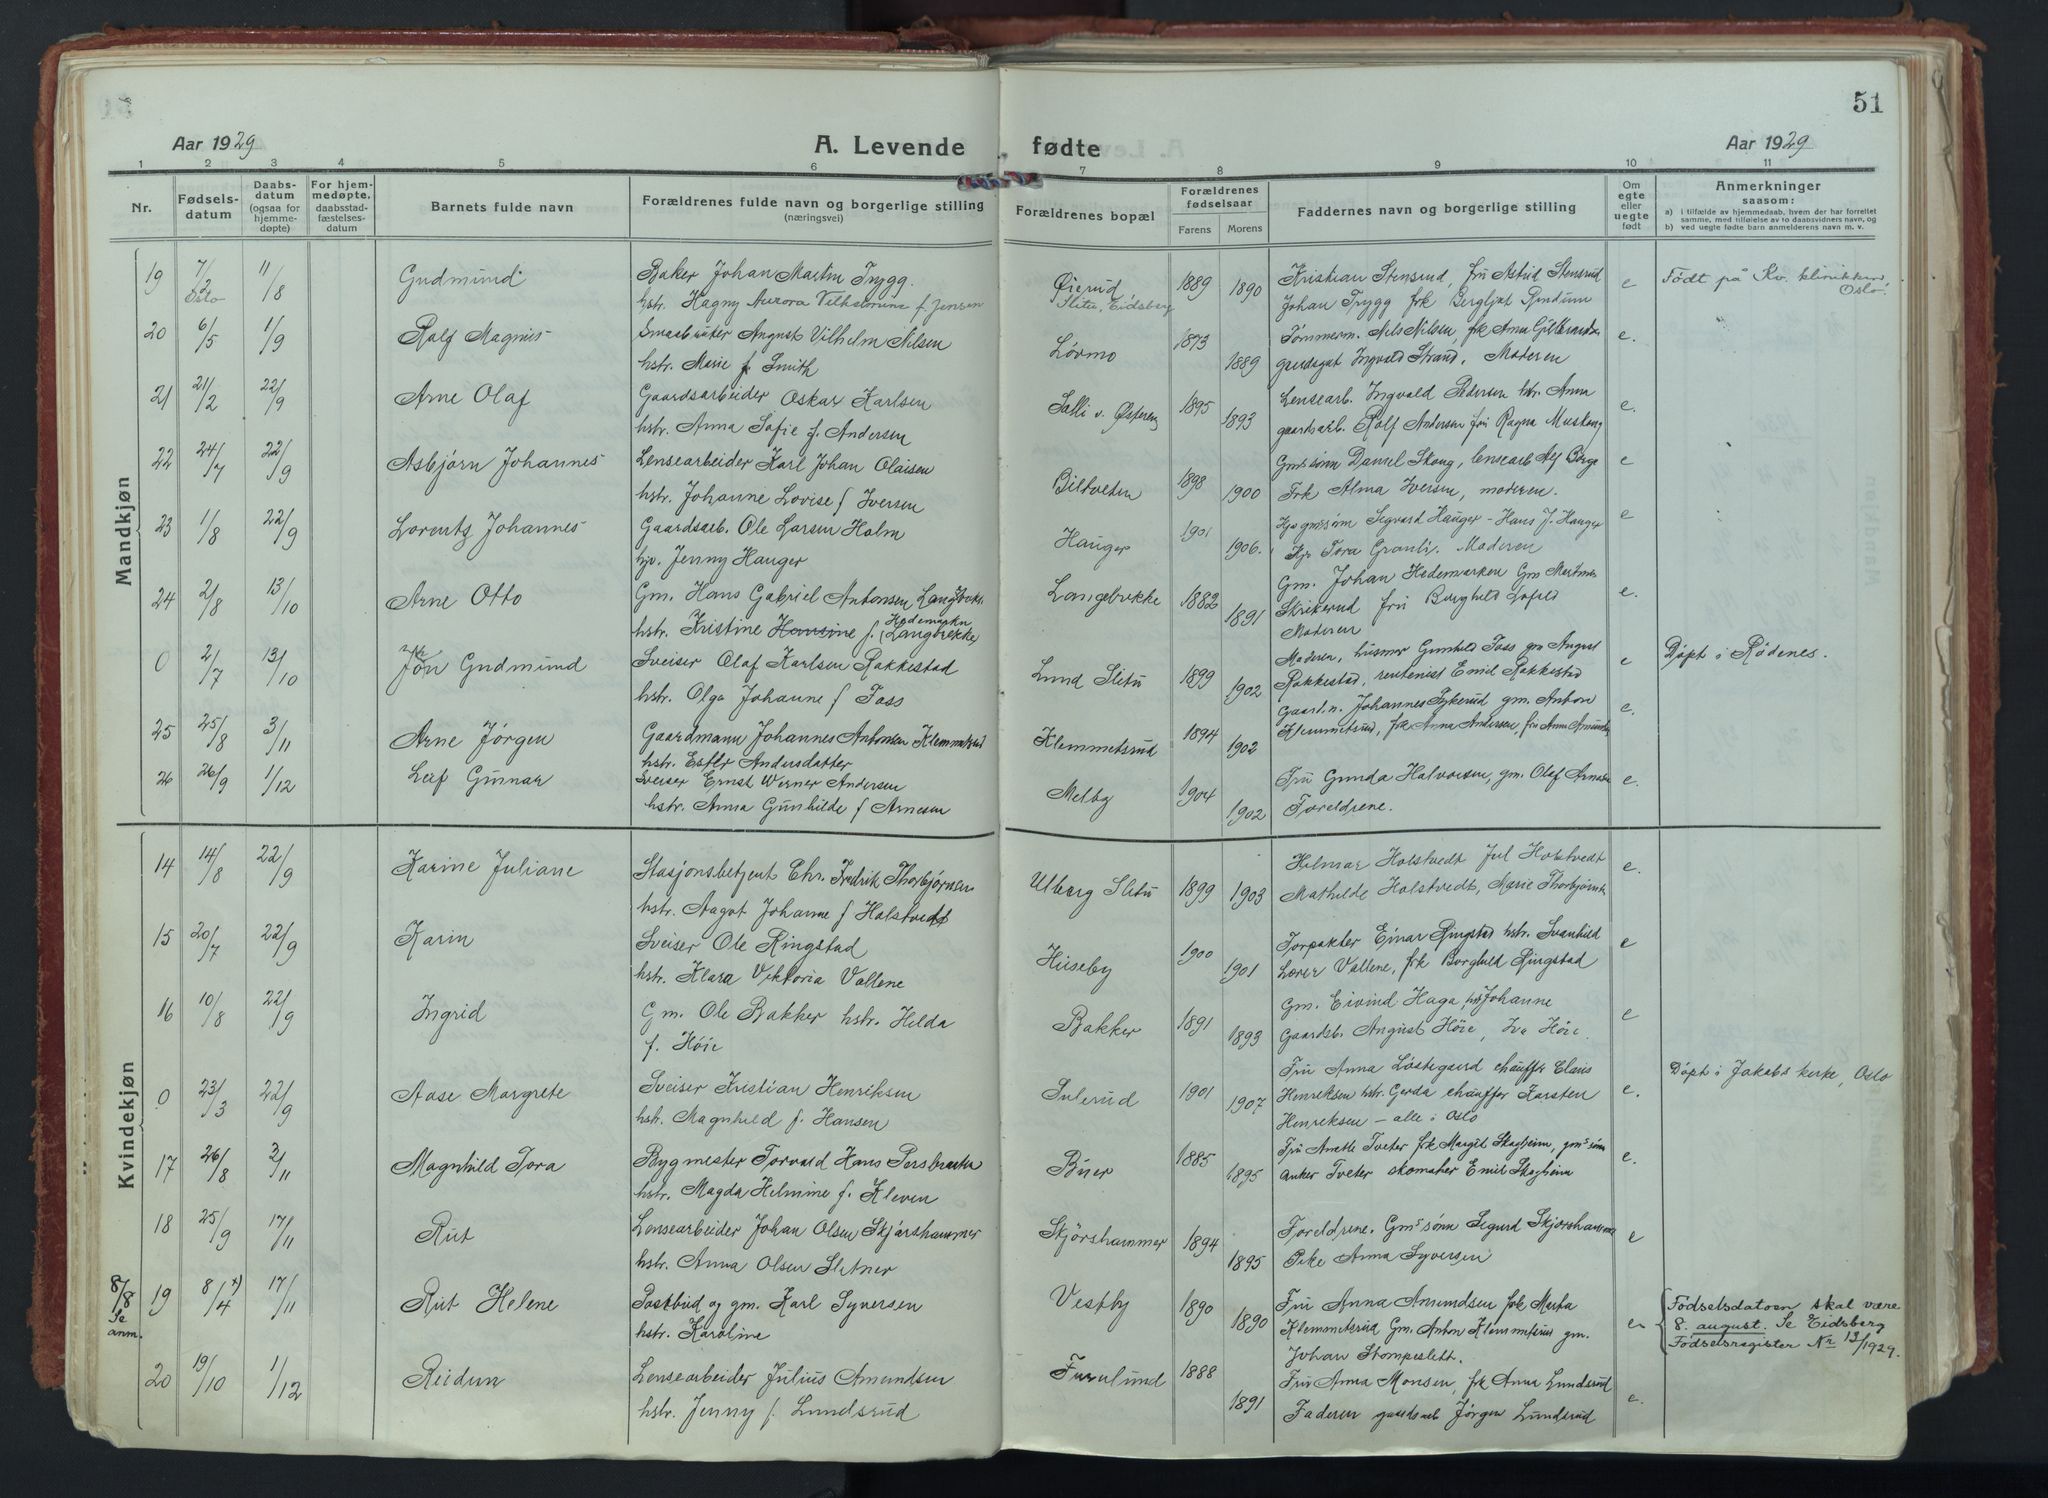 51
Aar 1929 A. Levende fødte Aar 1929
1 2 3 4 5 6 7 8 9 10 11
Nr. Fødsels-datum Daabs-datum (ogsaa for hjemme-døpte) For hjem-medøpte, daabsstad-fæstelses-datum Barnets fulde navn Forældrenes fulde navn og borgerlige stilling (næringsvei) Forældrenes bopæl Forældrenes fødselsaar Farens Morens Faddernes navn og borgerlige stilling Om egte eller uegte født Anmerkninger saasom:
a) i tilfælde av hjemmedaab, hvem der har forrettet samme, med tilføielse av to daabsvidners navn, og
b) ved uegte fødte barn anmelderens navn m. v.
Mandkjøn
19 7/2 Oslo 11/8 Gudmund Baker Johan Martin Trygg. Øierud 1889 Kristian Stensrud, fru Astrid Stensrud e Født på Kv. klinikken Oslo.
hstr. Hagny Aurora Vilhelmine f. Jensen Slitu, Eidsberg 1890 Johan Trygg frk Bergljot Rindum
20 6/5 1/9 Rolf Magnus Smaabruker August Vilhelm Nilsen Lövmo 1873 Tömmerm. Nils Nilsen, frk Anna e.
hstr. Marie f. Smith 1889 Ingvald Strand. Moderen
21 21/2 22/9 Arne Olaf Gaardsarbeider Oskar Karlsen Salli v. Østereng 1895 Lensearb. Ingvald Pedersen hstr. Anna e.
hstr. Anna Sofie f. Andersen 1893 gaardsarb. Rolf Andersen fru Ragna
22 24/7 22/9 Asbjørn Johannes Lensearbeider Karl Johan Olaisen 1898 Gm.s sønn Daniel Skaug, lensearb Alf Berge e
hstr. Johanne Lovise f Iversen 1900 Frk Alma Iversen, moderen.
23 1/8 22/9 Lorentz Johannes Gaardsarb. Ole Larsen Holm Hauger 1901 Sigvard Hauger - Hans J. Hauger e
hjv. Jenny Hauger 1906. Tora Granli. Moderen
24 2/8 13/10 Arne Otto Gm. Hans Gabriel Antonsen Langbrekke Langebrekke 1882 Gm. Johan Hedemarken Gm Martinus e.
hstr. Kristine Hansine f. Hedemarken (Langbrekke) 1891 Skrikerud fru Borghild
Moderen
0 2/7 13/10 Jon Gudmund Sveiser Olaf Karlsen Rakkestad Lund Slitu 1899 Moderen, husmor Gunhild Foss gm August e Döpt i Rødenes.
hstr. Olga Johanne f Foss 1902 Rakkestad, rentenist Emil Rakkestad
25 25/8 3/11 Arne Jörgen Gaardmann Johannes Antonsen Klemmetsrud Klemmetsrud 1894 Gaardm. Johannes gm. Anton e.
hstr. Ester Andersdatter 1902 Klemmetsrud, frk Anna Andersen, fru Anna
26 26/9 1/12 Leif Gunnar Sveiser Ernst Werner Andersen Melby 1904 Fru Gunda Halvorsen, gm. Olaf Arnesen e.
hstr. Anna Gunhilde f Arnesen 1902 Foreldrene.
Kvindekjøn
14 14/8 22/9 Karine Juliane Stasjonsbetjent Chr. Fredrik Thorbjørnsen Ulberg Slitu 1899 1903 Hilmar Holstvedt Jul Holstvedt e.
hstr. Aagot Johanne f Holstvedt Mathilde Holstvedt, Marie Thorbjørnsen
15 20/7 22/9 Karin Sveiser Ole Ringstad Huseby 1900 Forpakter Einar Ringstad hstr. Svanhild e
hstr. Klara Viktoria Vallene 1901 Lærer Vallene, frk Borghild Ringstad
16 10/8 22/9 Ingrid Gm. Ole Bakker hstr. Hilda Bakker 1891 Gm. Eivind Haga, hstr Johanne e
f. Höie 1893 Gaardsb. August Höie, Höie.
0 23/3 22/9 Aase Margrete Sveiser Kristian Henriksen Sulerud 1901 Fru Anna Lostegaard chauffør Claus e. Döpt i Jakobs kirke, Oslo
hstr. Magnhild f. Hansen 1907 Henriksen hstr. Gerda chauffør Karsten
Henriksen - alle i Oslo
17 26/8 3/11 Magnhild Tora Bygmester Torvald Hans Persbraaten Buer 1885 Fru Anette Tveter frk Margit Skogheim, gms sönn e.
hstr. Magda Helmine f. Kleven 1895 Anker Tveter skomaker Emil Skogheim
18 25/9 17/11 Rut Lensearbeider Johan Olsen Skjørshammer Skjörshammer 1894 Foreldrene. Gms sönn Sigurd Skjorshammer e
hstr. Anna Olsen Slitner 1895 Pike Anna Syversen
8/8 Se anm. 19 8/4 x) 17/11 Rut Helene Postbud og gm. Karl Syversen Vestby 1890 Fru Anna Amundsen frk Marta e Födselsdatoen skal være
hstr. Karoline 1890 Klemmetsrud Gm. Anton Klemmetsrud gm. 8. august. Se Eidsberg
Johan Stompeslett. Födselsregister Nr 13/1929.
20 19/10 1/12 Reidun Lensearbeider Julius Amundsen Furulund 1888 Fru Anna Monsen, frk Anna Lundsrud e.
hstr. Jenny f. Lundsrud 1891 Faderen gaardsarb Jörgen Lundsrud